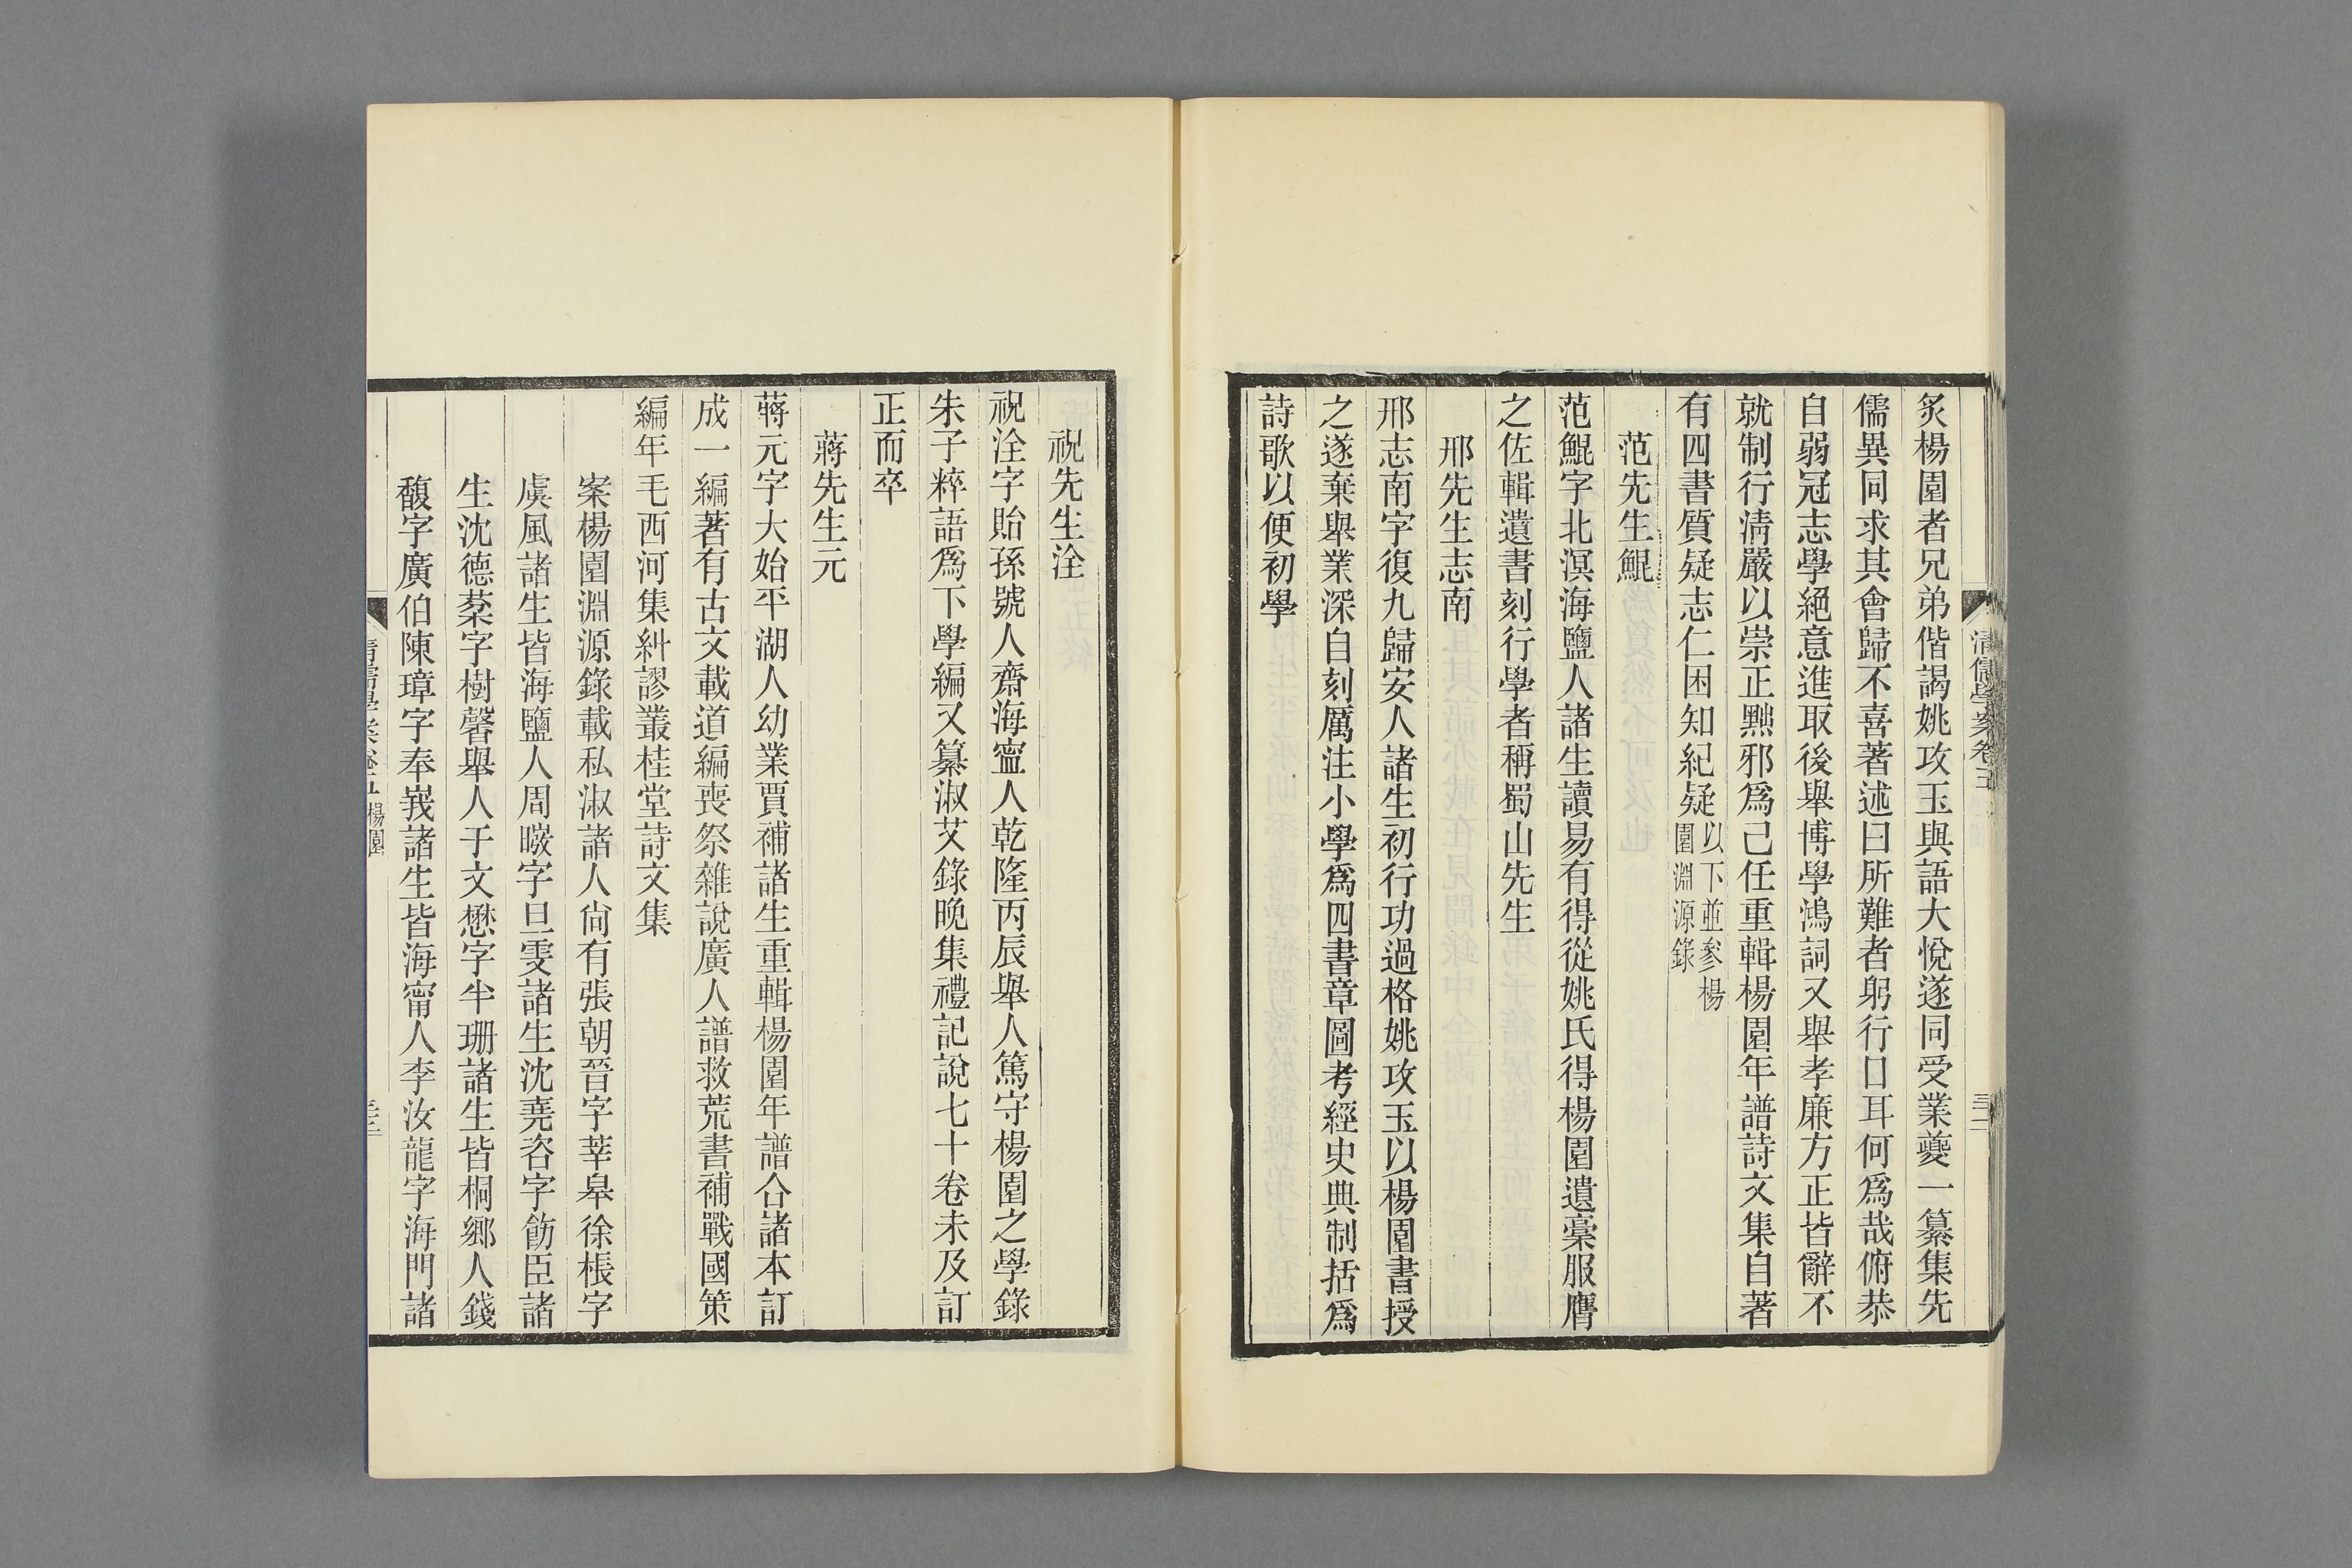 清儒學案卷五
三十一
炙楊園者兄弟偕謁姚攻玉與語大悅遂同受業夔一纂集先
儒異同求其會歸不喜著述曰所難者躬行口耳何爲哉俯恭
自弱冠志學絕意進取後舉博學鴻詞又舉孝廉方正皆辭不
就制行淸嚴以崇正黜邪爲己任重輯楊園年譜詩文集自著
有四書質疑志仁困知紀疑以下並參楊
園淵源錄
范先生鯤
范鯤字北溟海鹽人諸生讀易有得從姚氏得楊園遺稾服膺
之佐輯遺書刻行學者稱蜀山先生
邢先生志南
邢志南字復九歸安人諸生初行功過格姚攻玉以楊園書授
之遂棄舉業深自刻厲注小學爲四書章圖考經史典制括爲
詩歌以便初學
祝先生洤
祝洤字貽孫號人齋海寧人乾隆丙辰舉人篤守楊園之學錄
朱子粹語爲下學編又纂淑艾錄晚集禮記說七十卷未及訂
正而卒
蔣先生元
蔣元字大始平湖人幼業賈補諸生重輯楊園年譜合諸本訂
成一編著有古文載道編喪祭雜說廣人譜救荒書補戰國策
編年毛西河集糾謬叢桂堂詩文集
案楊園淵源錄載私淑諸人尙有張朝晉字莘皋徐棖字
虞風諸生皆海鹽人周暾字旦雯諸生沈堯咨字飭臣諸
生沈德棻字樹馨舉人于文懋字半珊諸生皆桐鄉人錢
馥字廣伯陳璋字奉峩諸生皆海甯人李汝龍字海門諸
清儒學案卷五 楊園